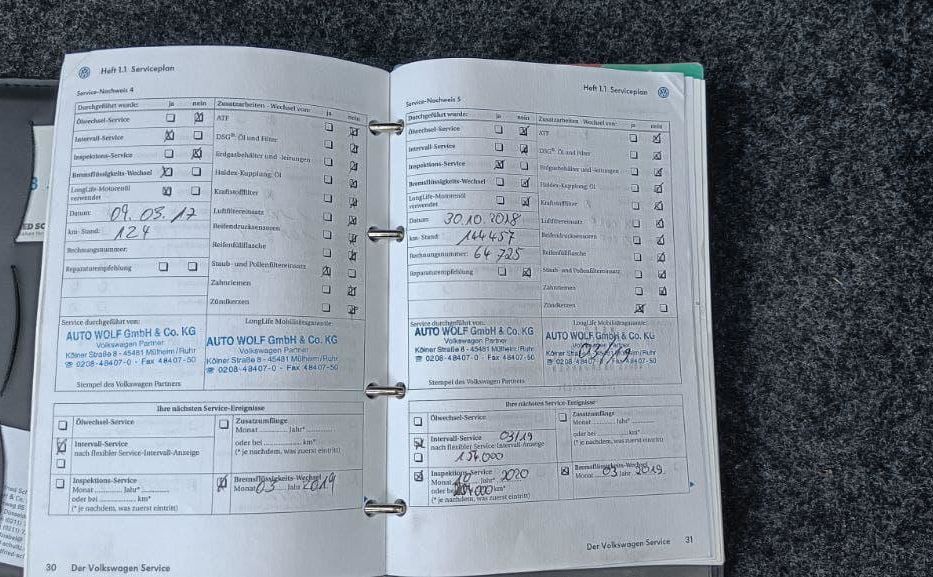 Heft 1.1 Serviceplan
Service-Nachweis 4
Durchgeführt wurde: ja nein Zusatzarbeiten - Wechsel von: ja nein
Ölwechsel-Service ATF
Intervall-Service DSG® Öl und Filter
Inspektions-Service Erdgasbehälter und -leitungen
Bremsflüssigkeits-Wechsel Haldex-Kupplung; Öl
LongLife-Motorenöl verwendet Kraftstofffilter
Datum: 09.03.17 Luftfiltereinsatz
km-Stand: 124 Reifendrucksensoren
Rechnungsnummer: Reifenfüllflasche
Reparaturempfehlung Staub- und Pollenfiltereinsatz
Zahnriemen
Zündkerzen
Service durchgeführt von: LongLife Mobilitätsgarantie:
AUTO WOLF GmbH & Co. KG
Volkswagen Partner
Kölner Straße 8 - 45481 Mülheim/Ruhr
☎ 0208-48407-0 - Fax 48407-50
AUTO WOLF GmbH & Co. KG
Volkswagen Partner
Kölner Straße 8 - 45481 Mülheim/Ruhr
☎ 0208-48407-0 - Fax 48407-50
Stempel des Volkswagen Partners
Ihre nächsten Service-Ereignisse
Ölwechsel-Service
Zusatzumfänge
Monat ............ Jahr*............
oder bei ............ km*
(* je nachdem, was zuerst eintritt)
Intervall-Service
nach flexibler Service-Intervall-Anzeige
Inspektions-Service
Monat ............ Jahr*............
oder bei ............ km*
(* je nachdem, was zuerst eintritt)
Bremsflüssigkeits-Wechsel
Monat 03 Jahr 2019
30 Der Volkswagen Service
Heft 1.1 Serviceplan
Service-Nachweis 5
Durchgeführt wurde: ja nein Zusatzarbeiten - Wechsel von: ja nein
Ölwechsel-Service ATF
Intervall-Service DSG® Öl und Filter
Inspektions-Service Erdgasbehälter und -leitungen
Bremsflüssigkeits-Wechsel Haldex-Kupplung; Öl
LongLife-Motorenöl verwendet Kraftstofffilter
Datum: 30.10.2018 Luftfiltereinsatz
km-Stand: 144457 Reifendrucksensoren
Rechnungsnummer: 64725 Reifenfüllflasche
Reparaturempfehlung Staub- und Pollenfiltereinsatz
Zahnriemen
Zündkerzen
Service durchgeführt von: LongLife Mobilitätsgarantie:
AUTO WOLF GmbH & Co. KG
Volkswagen Partner
Kölner Straße 8 - 45481 Mülheim/Ruhr
☎ 0208-48407-0 - Fax 48407-50
AUTO WOLF GmbH & Co. KG
Volkswagen Partner
Kölner Mülheim/Ruhr
☎ 0208-48407-0 - Fax 48407-50
Stempel des Volkswagen Partners
Ihre nächsten Service-Ereignisse
Ölwechsel-Service
Zusatzumfänge
Monat ............ Jahr*............
oder bei ............ km*
(* je nachdem, was zuerst eintritt)
Intervall-Service 03/19
nach flexibler Service-Intervall-Anzeige
154.000
Inspektions-Service
Monat 10 Jahr* 2020
oder bei km*
(* je nachdem, was zuerst eintritt)
Bremsflüssigkeits-Wechsel
Monat 03 Jahr 2019
Der Volkswagen Service 31